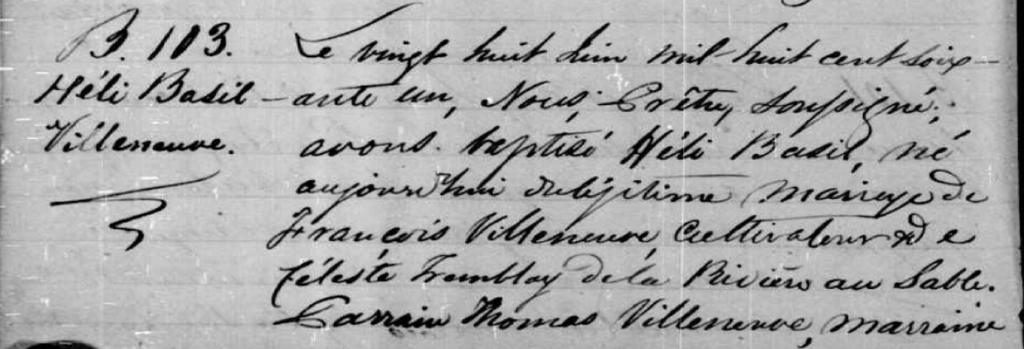 B. 113.
Héli Basil
Villeneuve.
Le vingt huit Juin mil huit cent soix-
ante un, Nous, Prêtre, soussigné,
avons baptisé Héli Basil, né
aujourd'hui du légitime mariage de
François Villeneuve, cultivateur & de
Céleste Tremblay de la Rivière au Sable.
Parrain Thomas Villeneuve, marraine